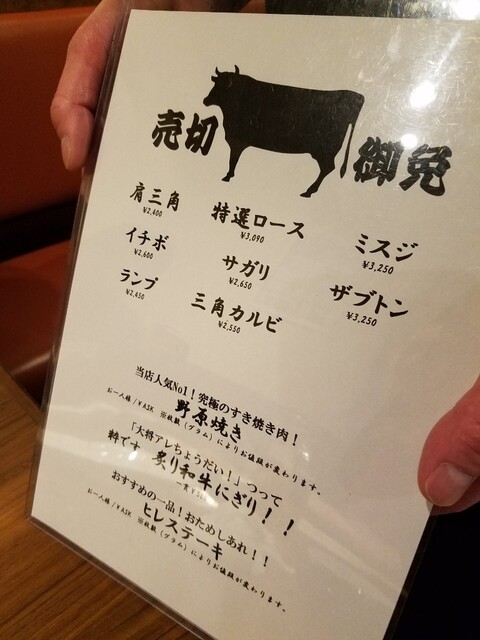 売切 御免
肩三角 特選ロース ミスジ
¥2,400 ¥3,090 ¥3,250
イチボ サガリ ザブトン
¥2,600 ¥2,650 ¥3,250
ランプ 三角カルビ
¥2,450 ¥2,550
当店人気No1！究極のすき焼き肉！
野原焼き
お一人様/¥ASK ※枚数（グラム）によりお値段が変わります。
「大将アレちょうだい！」つって
粋です 炙り和牛にぎり！！
一貫
おすすめの一品！おためしあれ！！
ヒレステーキ
お一人様/¥ASK ※枚数（グラム）によりお値段が変わります。